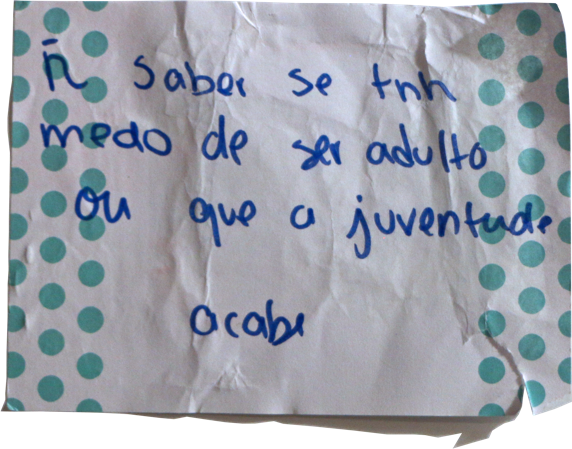 ñ saber se tnh
medo de ser adulto
ou que a juventude
acabe